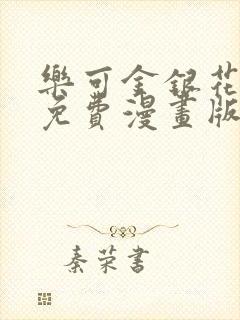 樂可金銀花
免費漫畫版
秦荣書